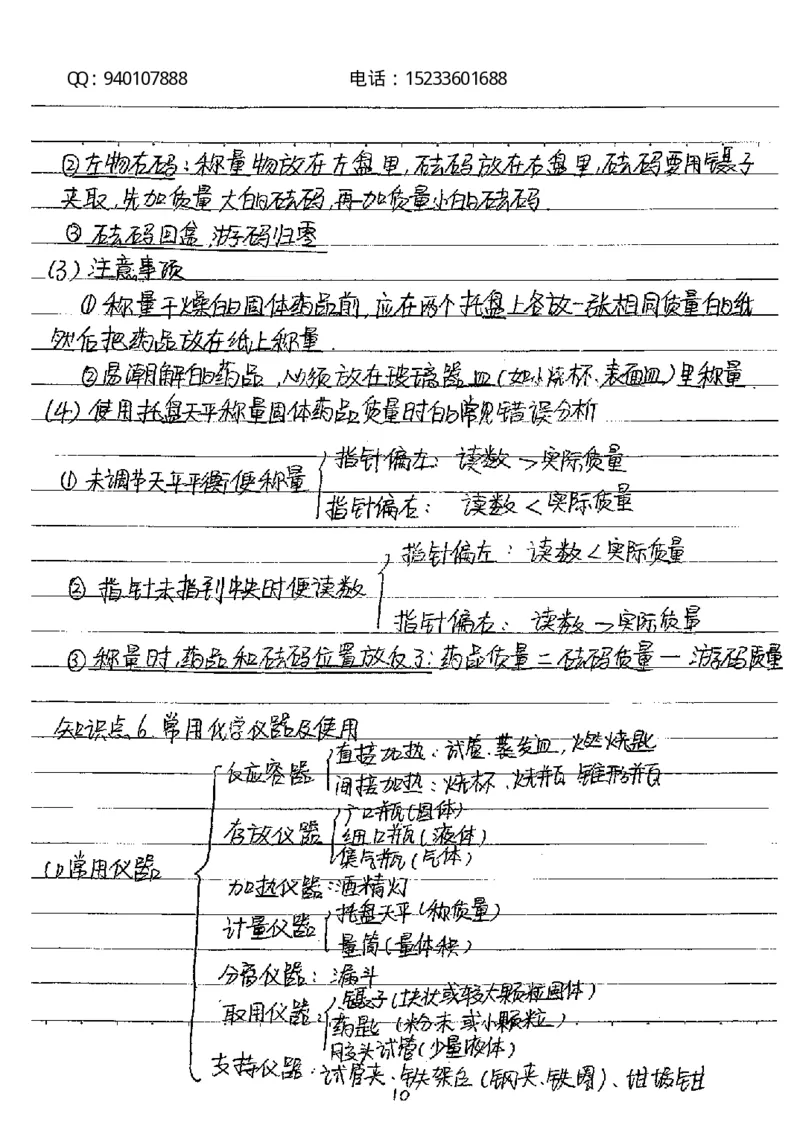 QQ：940107888 电话：15233601688
②左物右码：称量物放在左盘里，砝码放在右盘里，砝码要用镊子
夹取，先加质量大的砝码，再加质量小的砝码.
③ 砝码回盒，游码归零
(3) 注意事项
① 称量干燥的固体药品前，应在两个托盘上各放一张相同质量的纸
然后把药品放在纸上称量.
②易潮解的药品，必须放在玻璃器皿(如小烧杯、表面皿)里称量.
(4) 使用托盘天平称量固体药品质量时的常见错误分析
指针偏左： 读数 > 实际质量
① 未调节天平平衡便称量
指针偏右： 读数 < 实际质量
指针偏左： 读数 < 实际质量
② 指针未指到中央时便读数
指针偏右： 读数 > 实际质量
③ 称量时，药品和砝码位置放反了：药品质量 = 砝码质量 - 游码质量
知识点6. 常用化学仪器及使用
直接加热：试管、蒸发皿，燃烧匙
反应容器
间接加热：烧杯、烧瓶 锥形瓶
广口瓶(固体)
存放仪器 细口瓶(液体)
集气瓶(气体)
(1) 常用仪器
加热仪器：酒精灯
托盘天平(称质量)
计量仪器
量筒(量体积)
分离仪器：漏斗
镊子(块状或较大颗粒固体)
取用仪器： 药匙 (粉末或小颗粒)
胶头试管(少量液体)
支持仪器：试管夹、铁架台(钢夹、铁圈)、坩埚钳
10